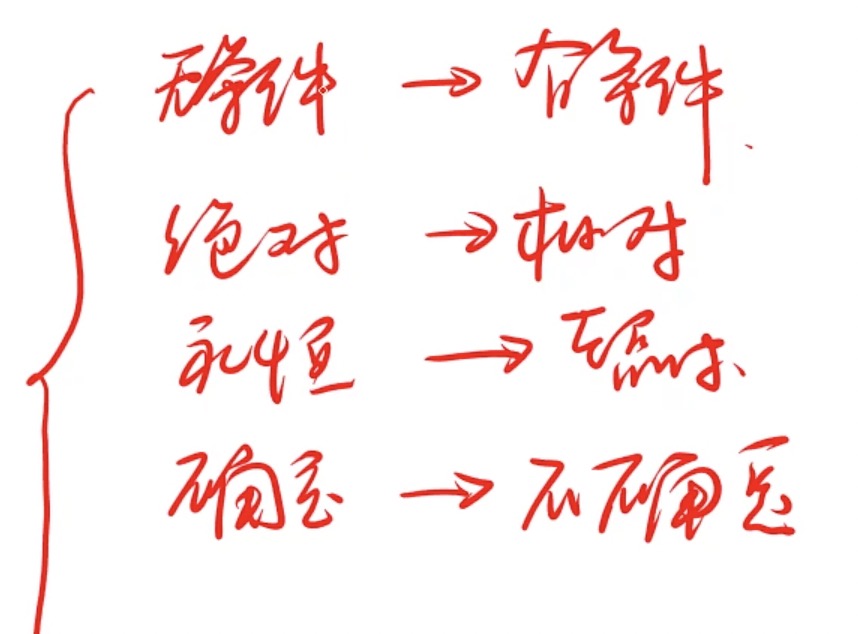 无条件 → 有条件
绝对 → 相对
永恒 → 短时
确定 → 不确定